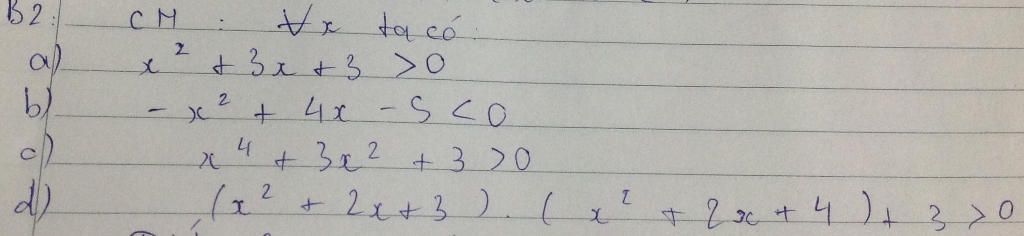 B2: CM : ∀x ta có:
a) x² + 3x + 3 > 0
b) - x² + 4x - 5 < 0
c) x⁴ + 3x² + 3 > 0
d) (x² + 2x + 3) . (x² + 2x + 4) + 3 > 0